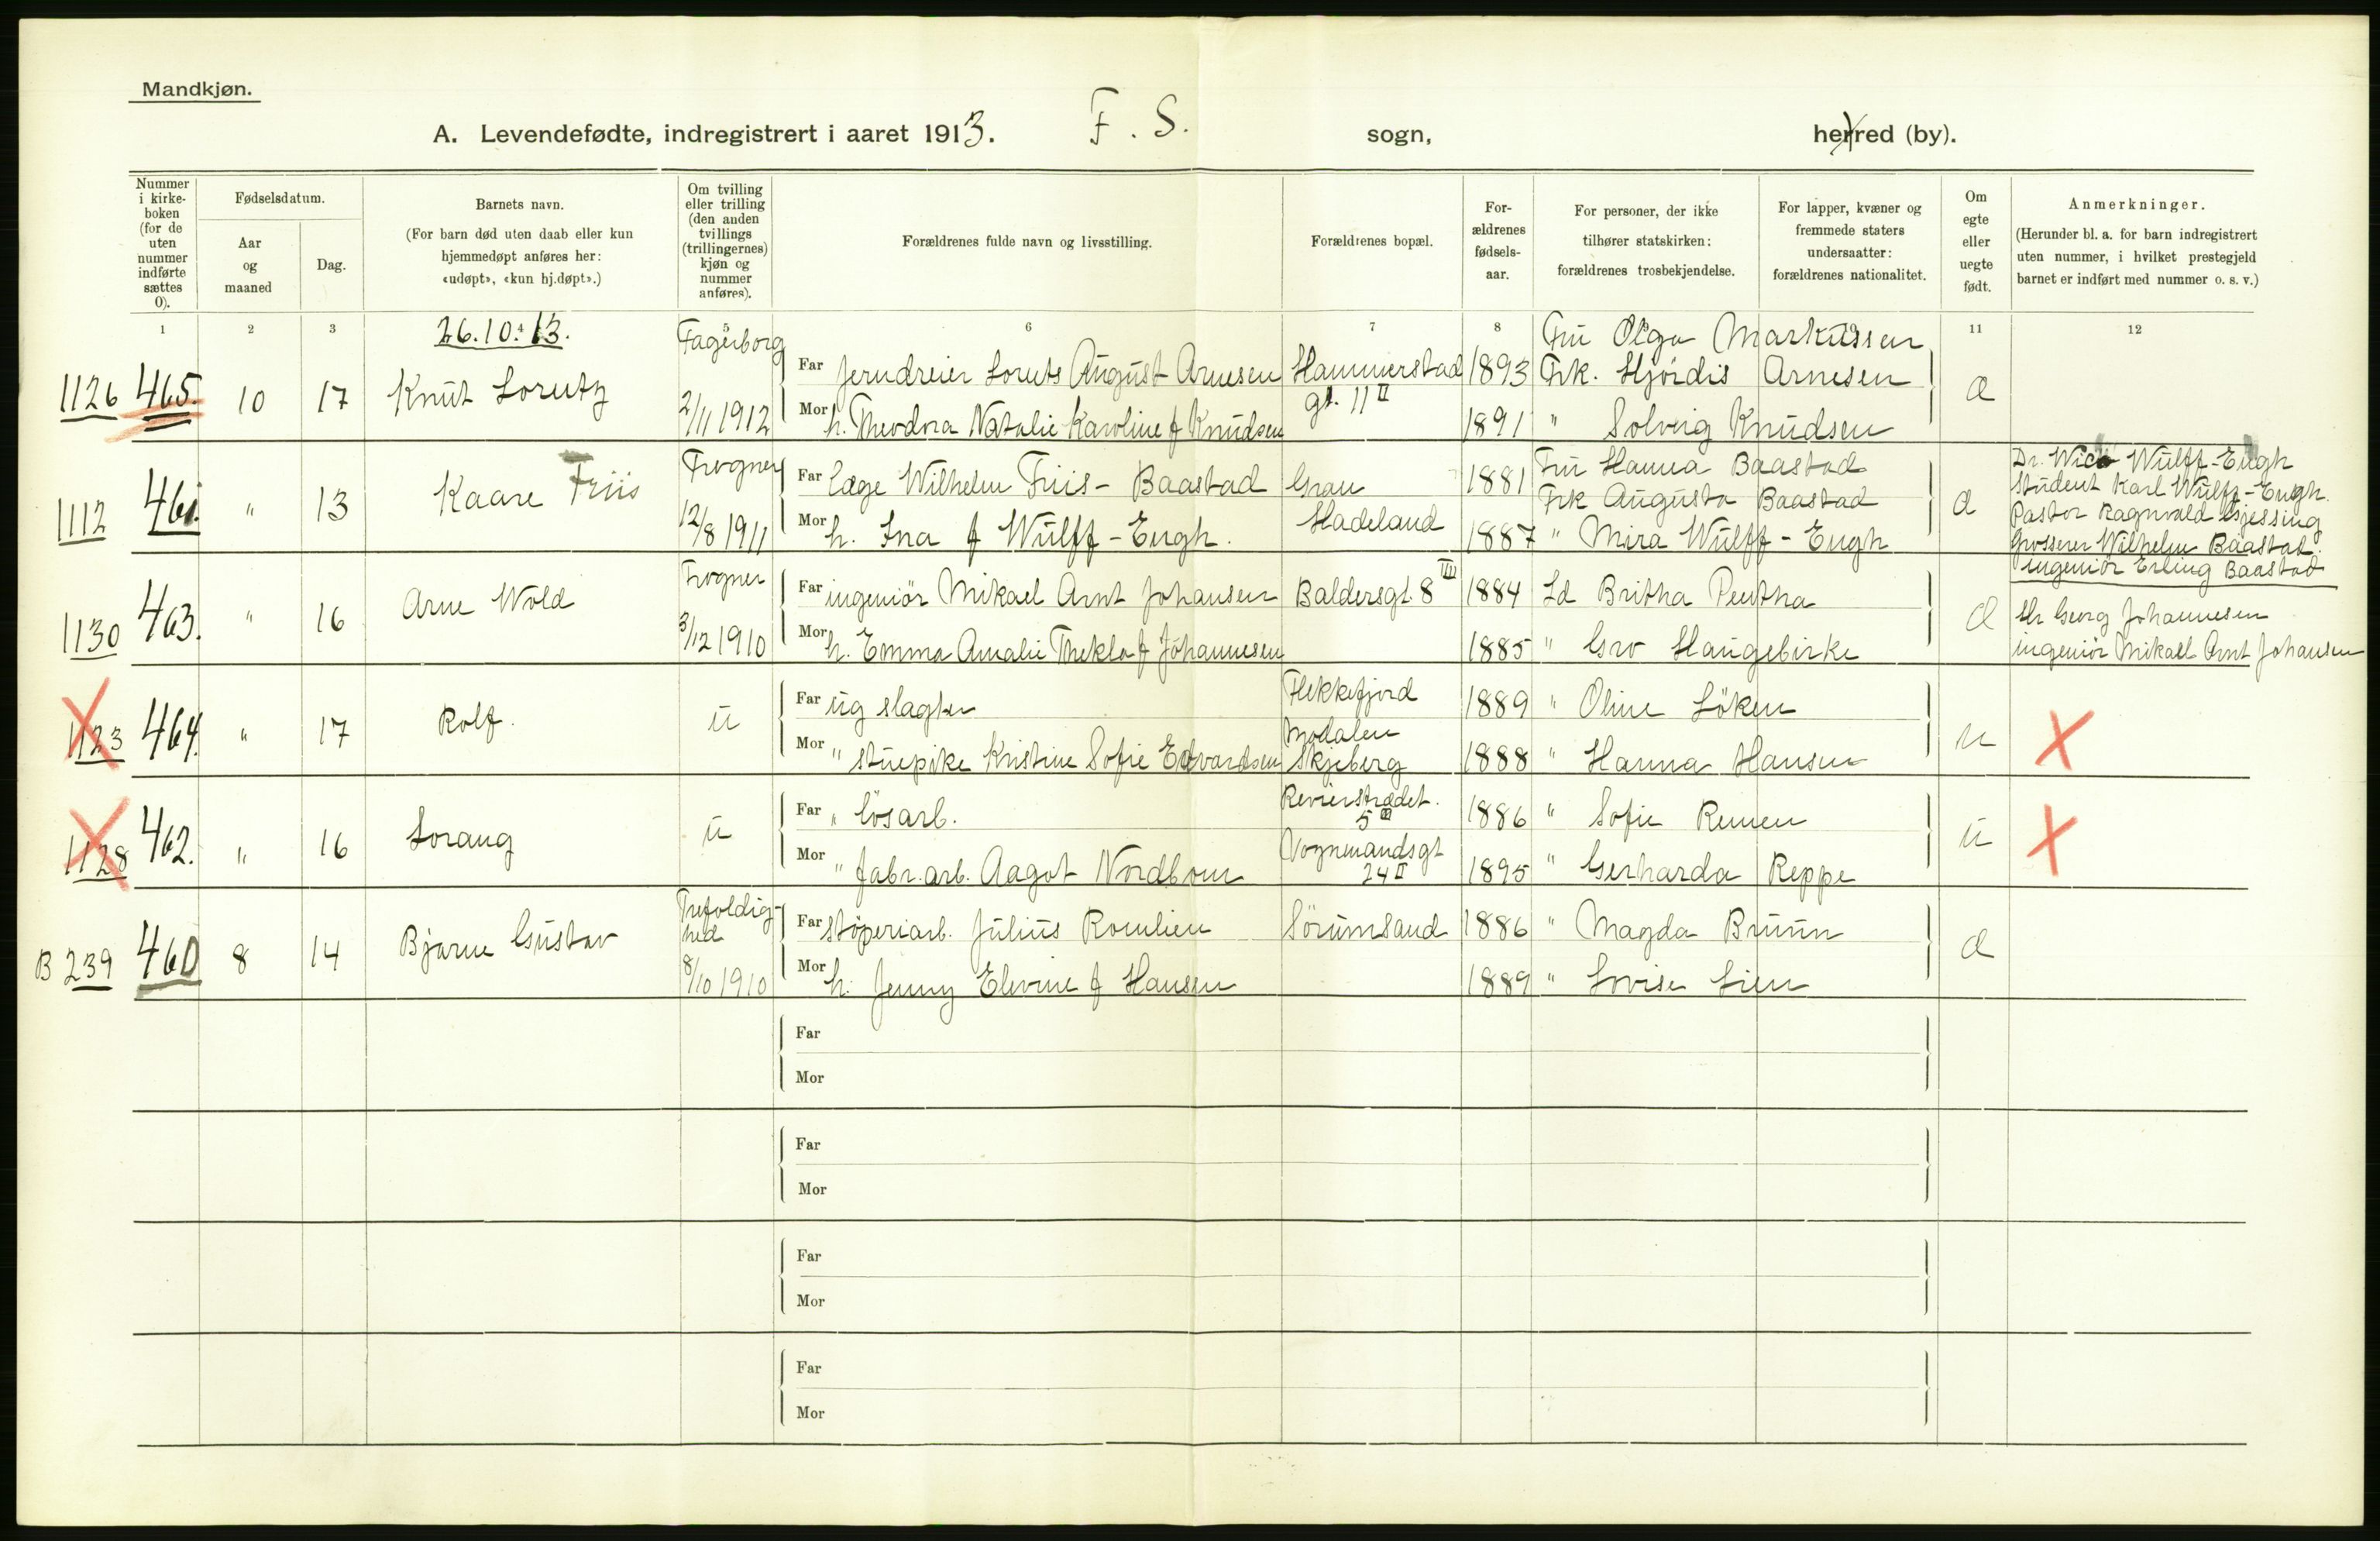 Mandkjøn.
A. Levendefødte, indregistrert i aaret 1913. F. S. sogn, herred (by).
Nummer i kirke-boken (for de uten nummer indførte sættes 0).
Fødselsdatum.
Aar og maaned
Dag.
Barnets navn.
(For barn død uten daab eller kun hjemmedøpt anføres her: «udøpt», «kun hj.døpt».)
Om tvilling eller trilling (den anden tvillings (trillingernes) kjøn og nummer anføres).
Forældrenes fulde navn og livsstilling.
Forældrenes bopæl.
For-ældrenes fødsels-aar.
For personer, der ikke tilhører statskirken: forældrenes trosbekjendelse.
For lapper, kvæner og fremmede staters undersaatter: forældrenes nationalitet.
Om egte eller uegte født.
Anmerkninger.
(Herunder bl. a. for barn indregistrert uten nummer, i hvilket prestegjeld barnet er indført med nummer o. s. v.)
1 2 3 4 5 6 7 8 11 12
26.10.13.
1126 465. 10 17 Knut Lorutz Fagerborg 2/11 1912
Far jerndreier Loruts August Arnesen Hammerstad gt. 11 II 1893
Mor h. Theodora Natalie Karoline f Knudsen 1891
Fru Olga Markussen
Frk. Hjördis Arnesen
" Solveig Knudsen
æ
1112 461. " 13 Kaare Friis Frogner 12/8 1911
Far læge Wilhelm Friis-Baastad Gran Hadeland 1881
Mor h. Ina f Wulff-Engh. 1887
Fru Hanna Baastad
Frk Augusta Baastad
" Mira Wulff-Engh
æ
Dr. Wulff-Engh
Student Karl Wulff-Engh.
Pastor Ragnvald Gjessing
Grosserer Wilhelm Baastad.
Ingeniör Erling Baastad
1130 463. " 16 Arne Wold Frogner 3/12 1910
Far ingeniör Mikael Arnt Johansen Baldersgt. 8 1884
Mor h. Emma Amalie Thekla f Johannesen 1885
Ld Britha Pentha
" Gro Haugebirke
æ
Hr Georg Johannesen
ingeniör Mikael Arnt Johansen
1123 464. " 17 Rolf. u
Far ug slagter Flekkefjord 1889
Mor " stuepike Kristine Sofie Edvardsen Modalen Skjeberg 1888
" Oline Löken
" Hanna Hansen
u
1128 462. " 16 Lorang u
Far " lösarb. Revierstrædet. 5 III 1886
Mor " fabr.arb. Aagot Nordbom Vognmandsgt 24 II 1895
" Sofie Remen
" Gerharda Reppe
u
B 239 460 8 14 Bjarne Gustav Trefoldighed 8/10 1910
Far støperiarb. Julius Romlien Sörumsand 1886
Mor h. Jenny Elevine f Hansen 1889
" Magda Bruun
" Lovise Lien
æ
Far
Mor
Far
Mor
Far
Mor
Far
Mor